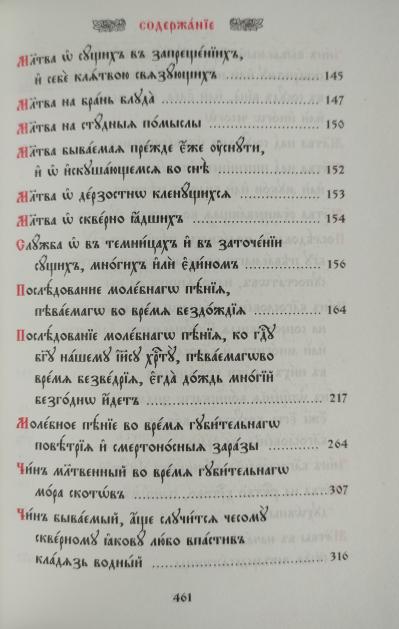 СОДЕРЖА́НЇЕ
Мл҃тва ѡ҆ сꙋ́щихъ въ запреще́нїихъ,
и҆ себѐ клѧ́твою свѧзꙋ́ющихъ ..... 145
Мл҃тва на бра́нь блꙋда̀ ..... 147
Мл҃тва на стꙋ́дныѧ по́мыслы ..... 150
Мл҃тва быва́емаѧ пре́жде є҆́же ᲂу҆снꙋ́ти,
и҆ ѡ҆ и҆скꙋша́ющемсѧ во снѣ̀ ..... 152
Мл҃тва ѡ҆ де́рзостнѡ кленꙋ́щихсѧ ..... 153
Мл҃тва ѡ҆ скве́рно ꙗ҆́дшихъ ..... 154
Слꙋ́жба ѡ҆ въ темни́цахъ и҆ въ заточе́нїи
сꙋ́щихъ, мно́гихъ и҆лѝ є҆ди́номъ ..... 156
Послѣ́дованїе моле́бнагѡ пѣ́нїѧ,
пѣва́емагѡ во вре́мѧ бездо́ждїѧ ..... 164
Послѣ́дованїе моле́бнагѡ пѣ́нїѧ, ко гдⷭ҇ꙋ
бг҃ꙋ на́шемꙋ і҆и҃сꙋ хрⷭ҇тꙋ̀, пѣва́емагѡво
вре́мѧ безве́дрїѧ, є҆гда̀ до́ждь мно́гїй
безго́днѡ и҆́детъ ..... 217
Моле́бное пѣ́нїе во вре́мѧ гꙋби́тельнагѡ
повѣ́трїѧ и҆ смертоно́сныѧ зара́зы ..... 264
Чи́нъ мл҃твенный во вре́мѧ гꙋби́тельнагѡ
мо́ра скотѡ́въ ..... 307
Чи́нъ быва́емый, а҆́ще слꙋчи́тсѧ чесомꙋ̀
скве́рномꙋ ꙗ҆́ковꙋ лю́бо впа́стивъ
кла́дѧзь во́дный ..... 316
461